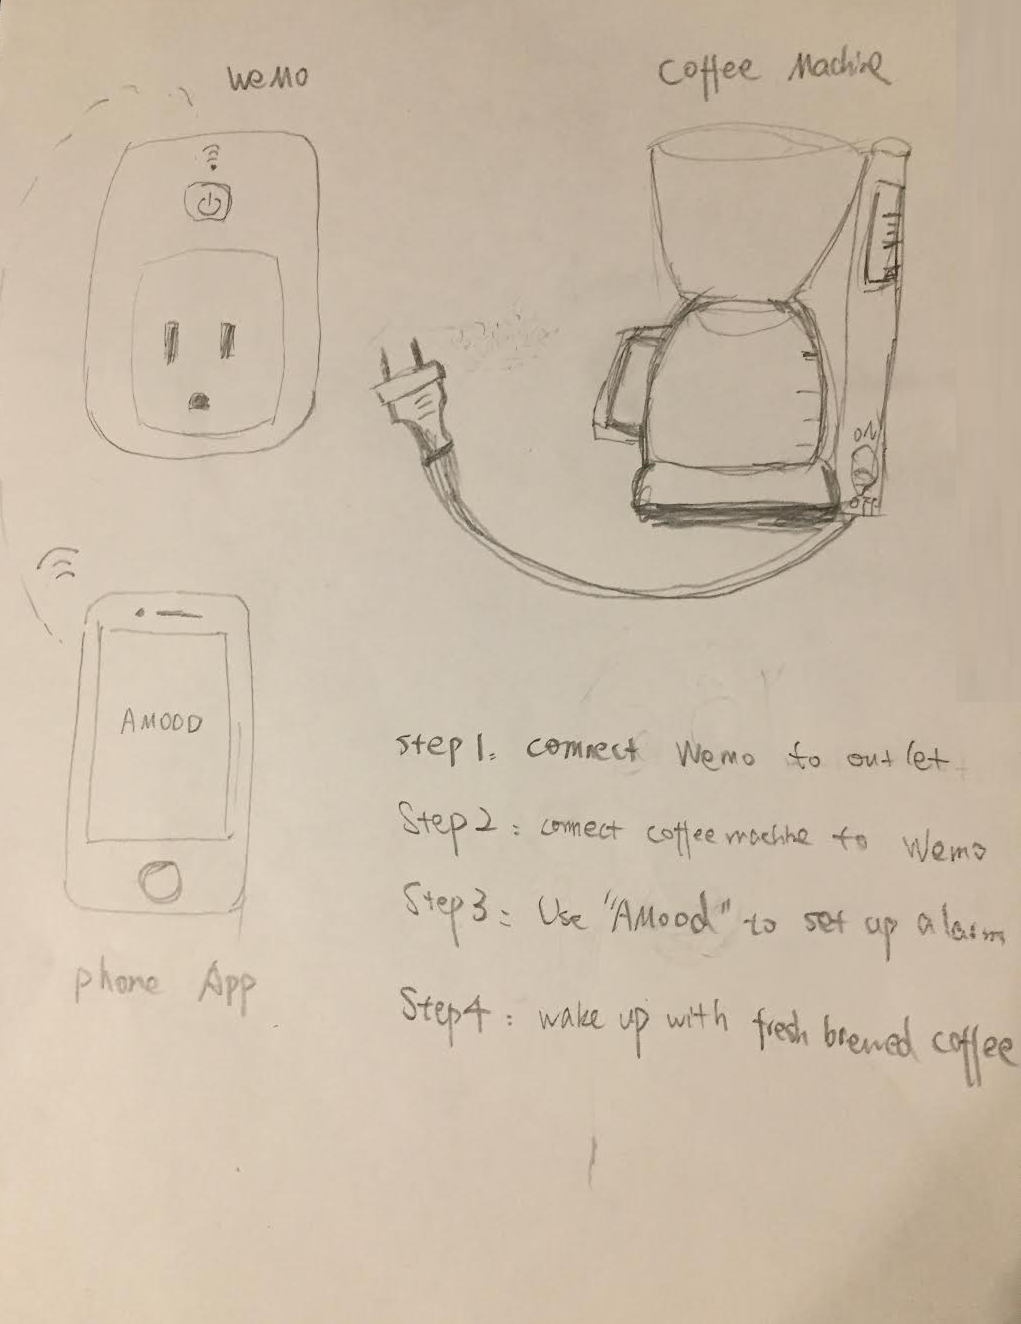 WeMo
Coffee Machine
ON
OFF
AMOOD
Phone App
Step 1: connect Wemo to outlet
Step 2: connect coffee machine to Wemo
Step 3: Use "AMood" to set up alarm
Step 4: wake up with fresh brewed coffee